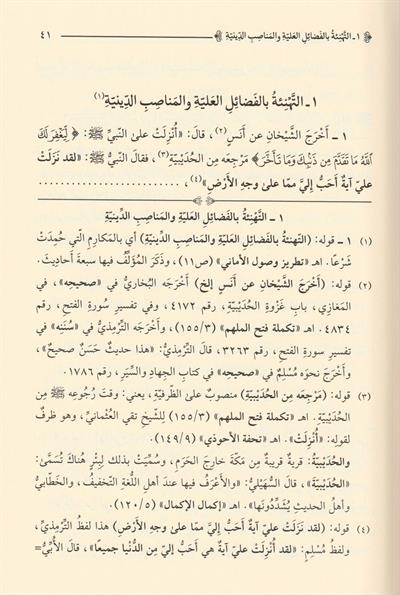 ١ ـ التَّهْنِئةُ بالفَضائلِ العَليّةِ والمَناصِبِ الدِّينيّةِ ٤١
١ ـ التَّهْنِئةُ بالفَضائلِ العَليّةِ والمَناصِبِ الدِّينيّةِ(١)
١ ـ أَخْرَجَ الشَّيْخانِ عن أَنَسٍ(٢)، قالَ: «أُنْزِلَتْ على النَّبيِّ ﷺ: ﴿ لِّيَغْفِرَ لَكَ
ٱللَّهُ مَا تَقَدَّمَ مِن ذَنۢبِكَ وَمَا تَأَخَّرَ﴾ مَرْجِعَه مِنَ الحُدَيْبِيَةِ(٣)، فقالَ النَّبيُّ ﷺ: «لقد نَزَلَتْ
عليَّ آيةٌ أَحَبُّ إليَّ ممّا على وجهِ الأَرْضِ»(٤)، ..............................
١ ـ التَّهْنِئةُ بالفَضائلِ العَليّةِ والمَناصِبِ الدِّينيّةِ
(١) ١ ـ قوله: (التَّهنئةُ بالفَضائلِ العَليّةِ والمَناصِبِ الدِّينيّةِ) أي بالمَكارِمِ الّتي حُمِدَتْ
شَرْعًا. اهـ «تطريز وصول الأماني» (ص١١)، وذَكَرَ المُؤلِّفُ فيها سبعةَ أحاديثَ.
(٢) قوله: (أَخْرَجَ الشَّيْخانِ عن أَنَسٍ إلخ) أَخْرَجَه البُخاريُّ في «صحيحِه»، في
المَغازي، بابِ غَزْوةِ الحُدَيْبِيَةِ، رقم ٤١٧٢، وفي تفسيرِ سُورةِ الفتحِ، رقم
٤٨٣٤. اهـ «تكملة فتح الملهم» (١٥٥/٣)، وأَخْرَجَه التِّرْمِذيُّ في «سُنَنِه» في
تفسيرِ سورةِ الفَتحِ، رقم ٣٢٦٣، قالَ التِّرْمِذيُّ: «هذا حديثٌ حَسَنٌ صحيحٌ»،
وأَخْرَجَ نحوَه مُسْلِمٌ في «صحيحِه» في كتابِ الجِهادِ والسِّيَرِ، رقم ١٧٨٦.
(٣) قوله: (مَرْجِعَه مِن الحُدَيْبِيَةِ) منصوبٌ على الظَّرفيّةِ، يعني: وقتَ رُجُوعِه ﷺ مِن
الحُدَيْبِيَةِ. اهـ «تكملة فتح الملهم» (١٥٥/٣) للشَّيخِ تقي العُثْمانيِّ، وهو ظرفٌ
لقوله: «أُنْزِلَتْ». اهـ «تحفة الأحوذي» (١٤٩/٩)
والحُدَيْبِيَةُ: قريةٌ قريبةٌ مِن مَكّةَ خارِجَ الحَرَمِ، وسُمِّيَتْ بذلك لِبِئْرٍ هُناكَ تُسَمَّى:
«الحُدَيْبِيَةَ»، قالَ السُّهَيْليُّ: «والأَعْرَفُ فيها عندَ أهلِ اللُّغةِ التَّخفيفُ، والخَطّابيُّ
وأهلُ الحديثِ يُشَدِّدُونَها». اهـ «إكمال الإكمال» (١٢٠/٥)
(٤) قوله: (لقد نَزَلَتْ عليَّ آيةٌ أَحَبُّ إليَّ ممّا على وجهِ الأَرْضِ) هذا لفظُ التِّرْمِذيِّ،
ولفظُ مُسْلِمٍ: «لقد أُنْزِلَتْ عليَّ آيةٌ هي أَحَبُّ إليَّ مِن الدُّنْيا جميعًا»، قالَ الأُبِّيُّ=